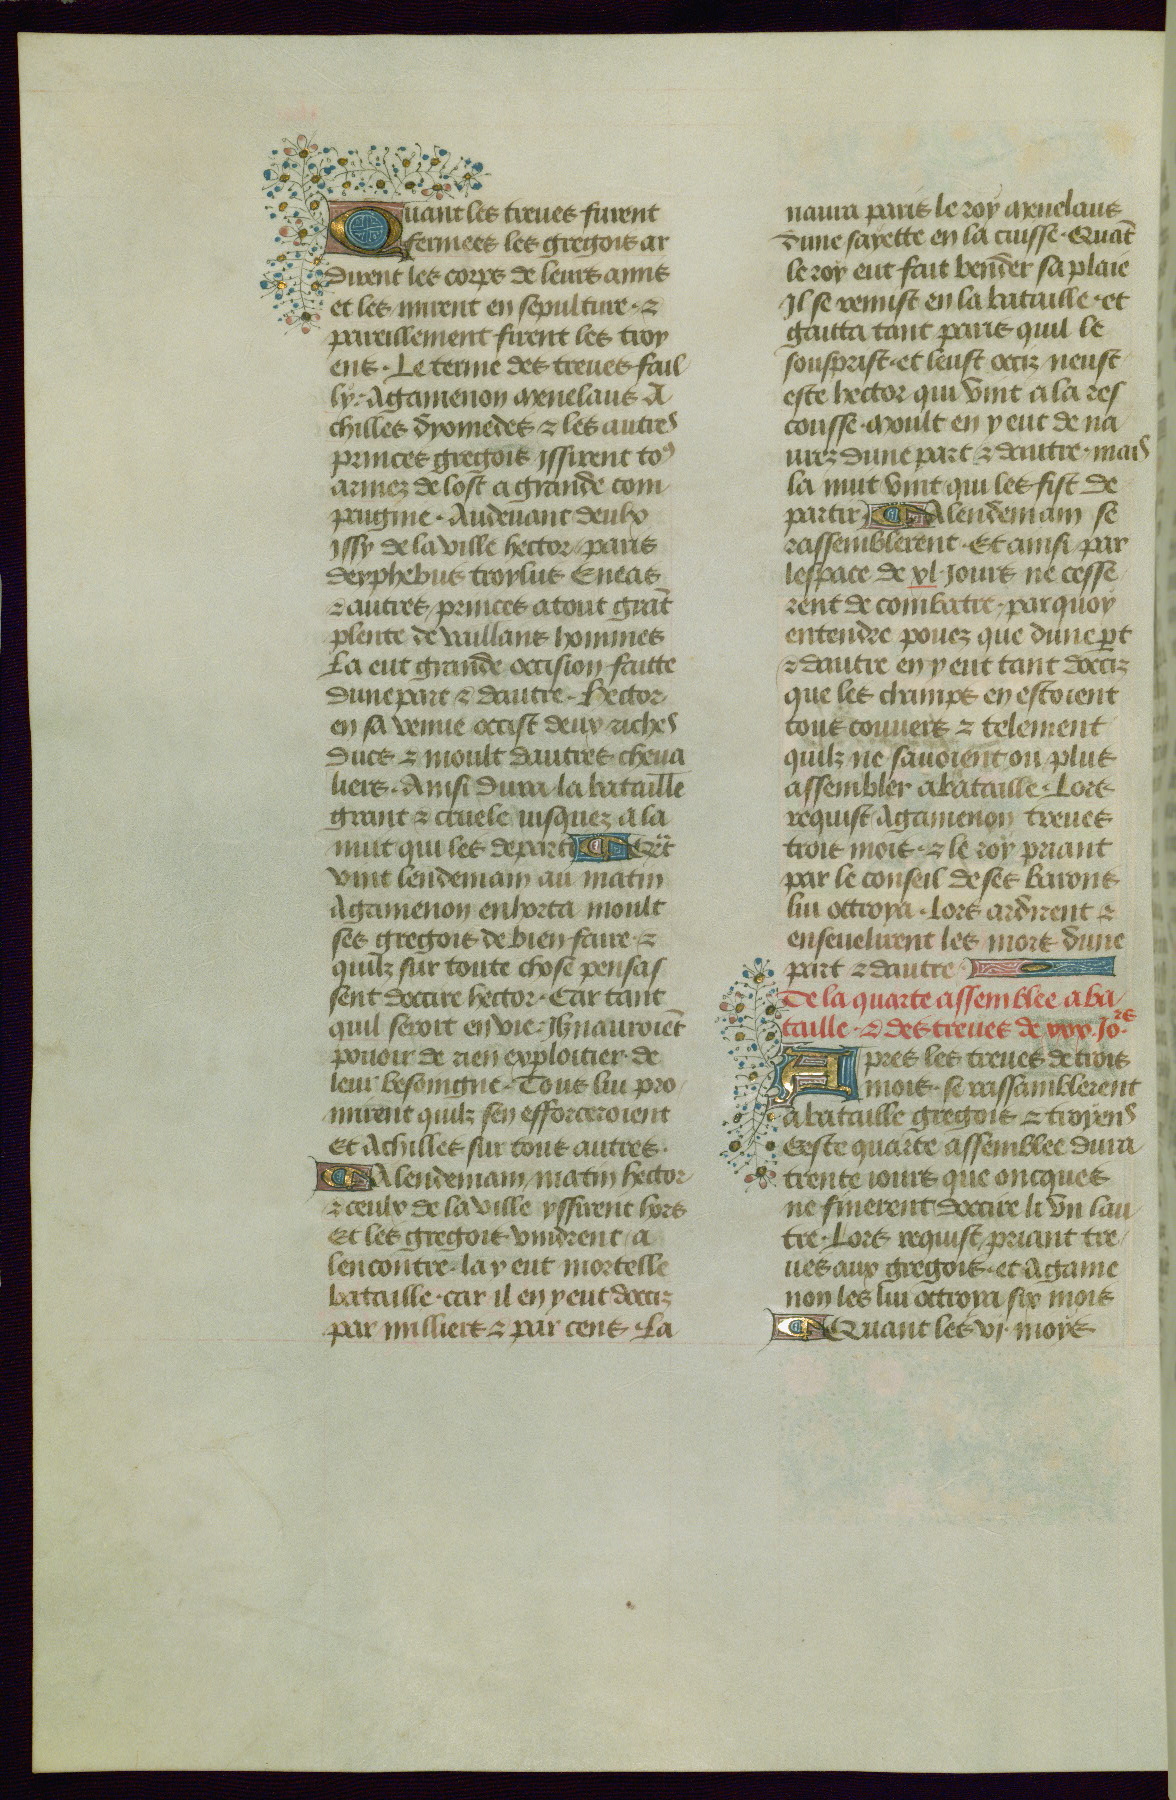 Quant les treues furent
fermees les gregois ar
dirent les corps de leurs amis
et les mirent en sepulture · ⁊
pareillement firent les troy
ens · Le terme des treues fail
ly · Agamenon menelaus A
chilles dyomedes ⁊ les autres
princes gregois issirent toꝰ
armez de lost a grande com
paignie · Audeuant deulx
issy de la ville hector paris
deyphebus troylus Eneas
⁊ autres princes atout grāt
plente de vaillans hommes
La eut grande occision faitte
dune part ⁊ dautre · Hector
en sa venue occist deux riches
ducs ⁊ moult dautres cheua
liers · Ainsi dura la bataille
grant ⁊ cruele iusquez a la
nuit qui les departi
vint lendemain au matin
Agamenon enhorta moult
ses gregois de bien faire · ⁊
quilz sur toute chose pensas
sent doccire hector · Car tant
quil seroit en vie Ilz nauroiēt
pouoir de rien exploitier de
leur besoingne · Tous lui pro
mirent quilz sen efforceroient
Et Achilles sur tous autres ·
A lendemain matin hector
⁊ ceulx de la ville yssirent hors
Et les gregois vindrent a
lencontre · la y eut mortelle
bataille · car il en y eut doccis
par milliers ⁊ par cens · La
naura paris le roy menelaus
dune sayette en la cuisse · Quāt
le roy eut fait bender sa plaie
Il se remist en la bataille · et
gaitta tant paris quil le
sousprist · et leust occiz neust
este hector qui vint a la res
cousse · Moult en y eut de na
urez dune part ⁊ dautre · mais
la nuit vint qui les fist de
partir A lendemain se
rassemblerent · Et ainsi par
lespace de xl · Jours ne cesse
rent de combatre · par quoy
entendre pouez que dune ꝑt
⁊ dautre en y eut tant docciz
que les champs en estoient
tous couuers ⁊ telement
quilz ne sauoient ou plus
assembler a bataille · Lors
requist Agamenon treues
trois mois · ⁊ le roy priant
par le conseil de ses barons
lui ottroya · Lors ardirent ⁊
enseuelirent les mors dune
part ⁊ dautre ·
De la quarte assemblee a ba
taille · ⁊ des treues de xxx · Joʳˢ ·
Apres les treues de trois
mois · se rassamblerent
a bataille gregois ⁊ troyens
Ceste quarte assemblee dura
trente iours que oncques
ne finerent doccire li vn lau
tre · Lors requist priant tre
ues aux gregois · et Agame
non les lui ottroya six mois
Quant les vj · moys